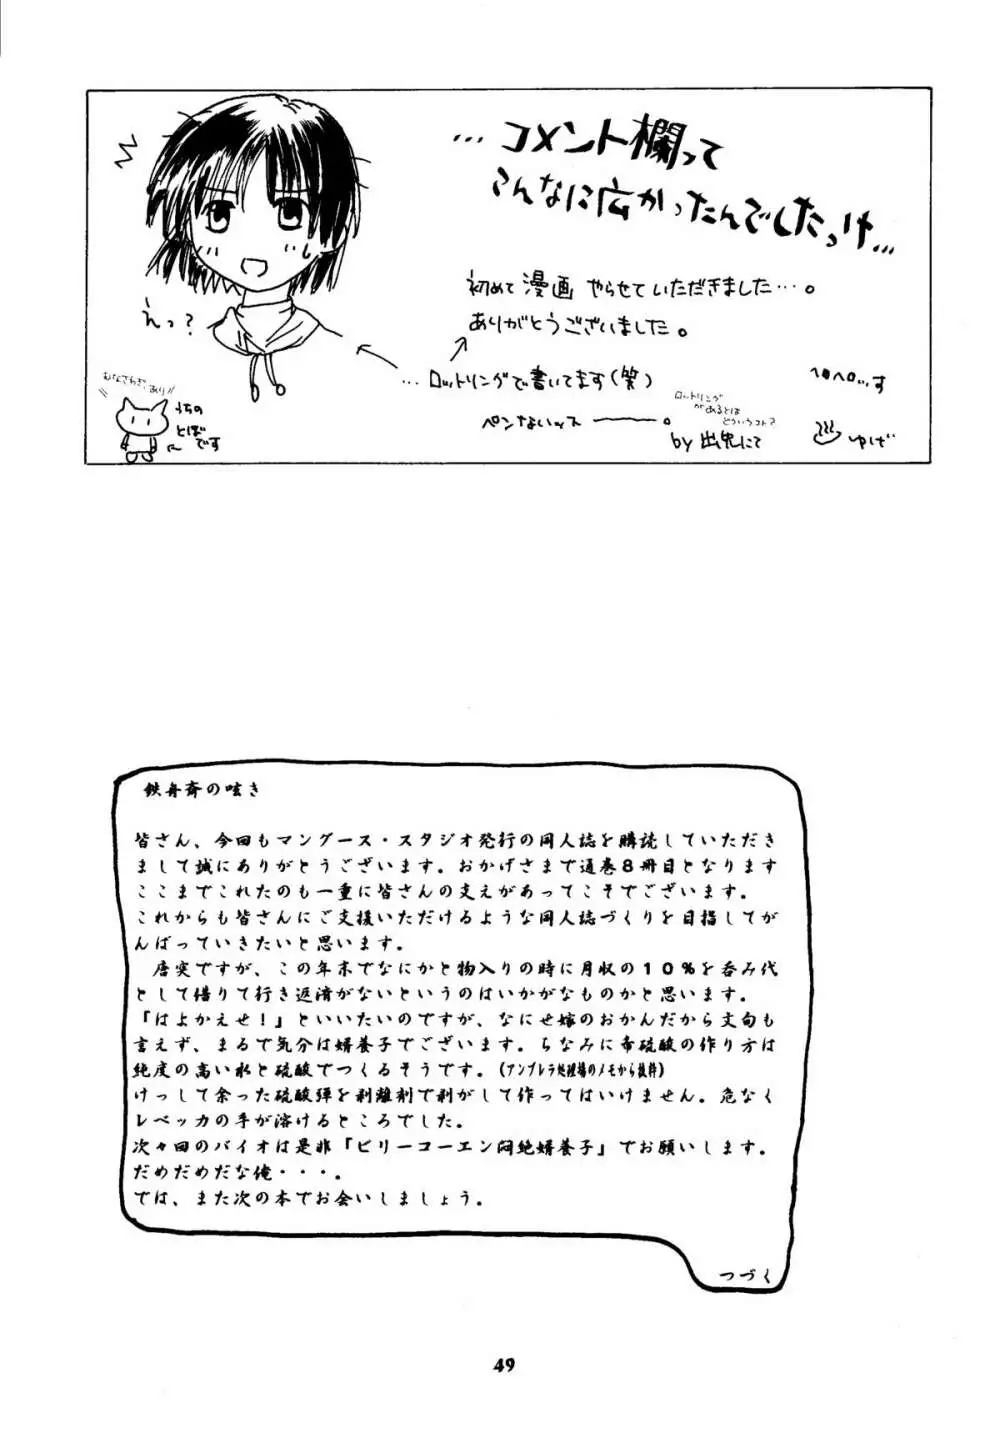 …コメント欄って
こんなに広かったんでしたっけ…
初めて漫画やらせていただきました…。
ありがとうございました。
えっ?
…ロットリングで書いてます(笑)
ペンないッス―――。
ロットリング
があるとは
どういうコト?
by 出兎にて
へロへロ…っす
ゆげ
むなさわぎ、あり!!
うちの
とばです
鉄舟斎の呟き
皆さん、今回もマングース・スタジオ発行の同人誌を購読していただき
まして誠にありがとうございます。おかげさまで通巻8冊目となります
ここまでこれたのも一重に皆さんの支えがあってこそでございます。
これからも皆さんにご支援いただけるような同人誌づくりを目指してが
んばっていきたいと思います。
唐突ですが、この年末でなにかと物入りの時に月収の10%を呑み代
として借りて行き返済がないというのはいかがなものかと思います。
『はよかえせ!』といいたいのですが、なにせ嫁のおかんだから文句も
言えず、まるで気分は婿養子でございます。ちなみに希硫酸の作り方は
純度の高い水と硫酸でつくるそうです。(アンブレラ処理場のメモから抜粋)
けっして余った硫酸弾を剥離剤で剥がして作ってはいけません。危なく
レベッカの手が溶けるところでした。
次々回のバイオは是非『ビリーコーエン悶絶婿養子』でお願いします。
だめだめだな俺・・・。
では、また次の本でお会いしましょう。
つづく
49